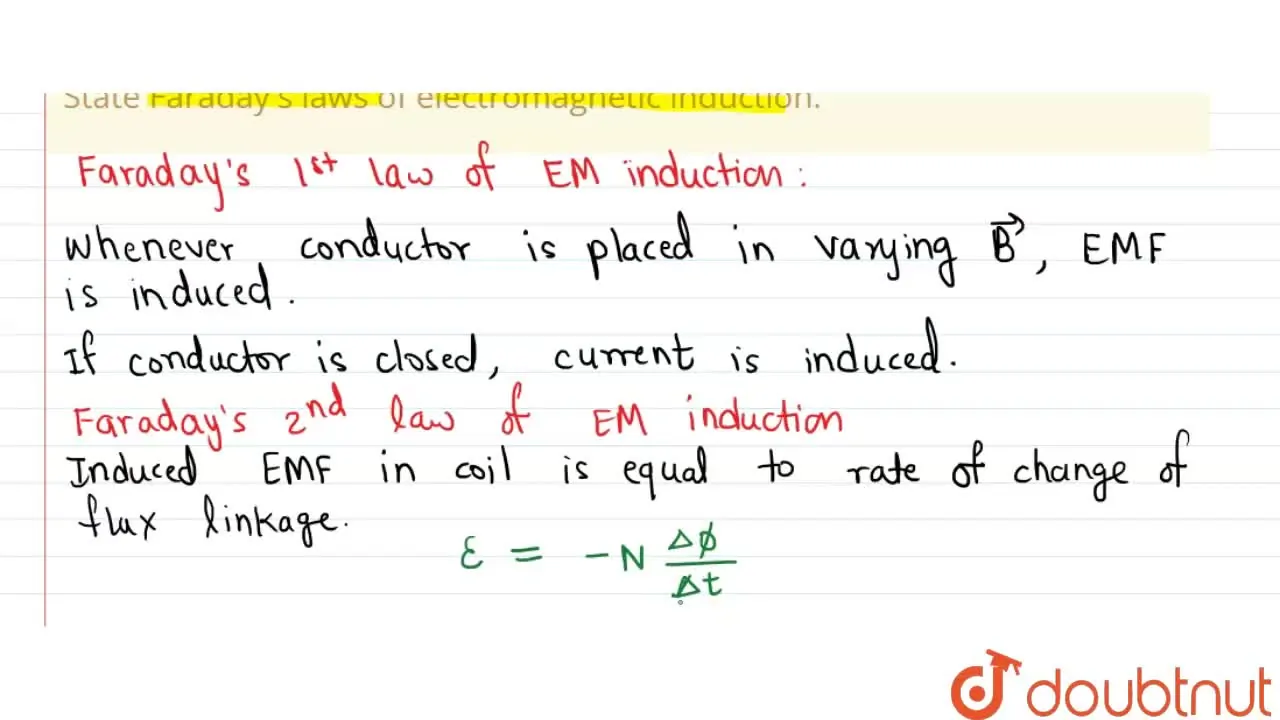 State Faraday's laws of electromagnetic induction.
Faraday's 1st law of EM induction:
Whenever conductor is placed in varying B⃗, EMF
is induced.
If conductor is closed, current is induced.
Faraday's 2nd law of EM induction
Induced EMF in coil is equal to rate of change of
flux linkage.
ε = -N Δϕ/Δt
doubtnut